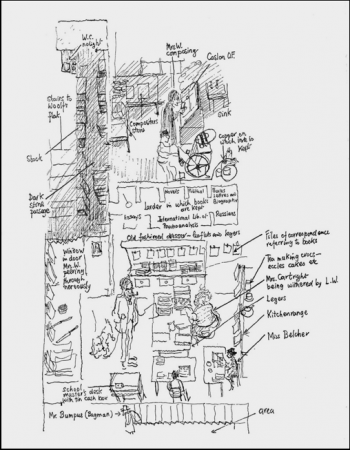 W.C.
no light
Mrs W.
composing
Caslon O.F.
Stairs to
Woolfs
flat
Compositors
stone
sink
copper on
which
kept
Stock
Dark
stone
passage
Novels
Political
Books
Biographies
Larder in which books
are kept
Essays
International Lib. of
Psychoanalysis
Russians
Old fashioned dresser
and ledgers
window
in door
Mrs. W.
peering
through
nervously
Files of correspondence
referring to books
Tea making
eccles cakes etc
Mrs. Cartwright
being withered by L.W.
Legers
Kitchenrange
Miss Belcher
School
masters desk
with tin cash box
Mr. Bumpus (Bagman)
area